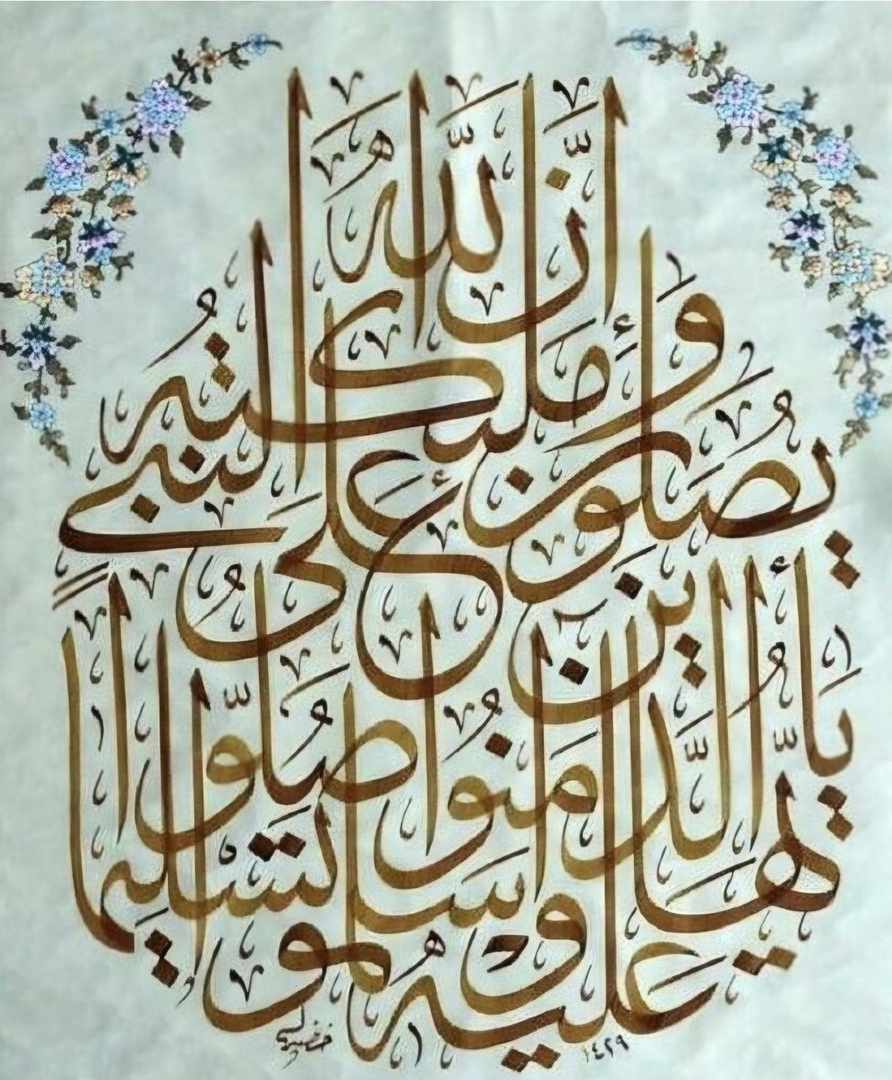 إِنَّ اللَّهَ
وَمَلَٰئِكَتَهُ
يُصَلُّونَ عَلَى النَّبِيِّ
يَا أَيُّهَا الَّذِينَ آمَنُوا صَلُّوا
عَلَيْهِ وَسَلِّمُوا تَسْلِيمًا
١٤٢٩